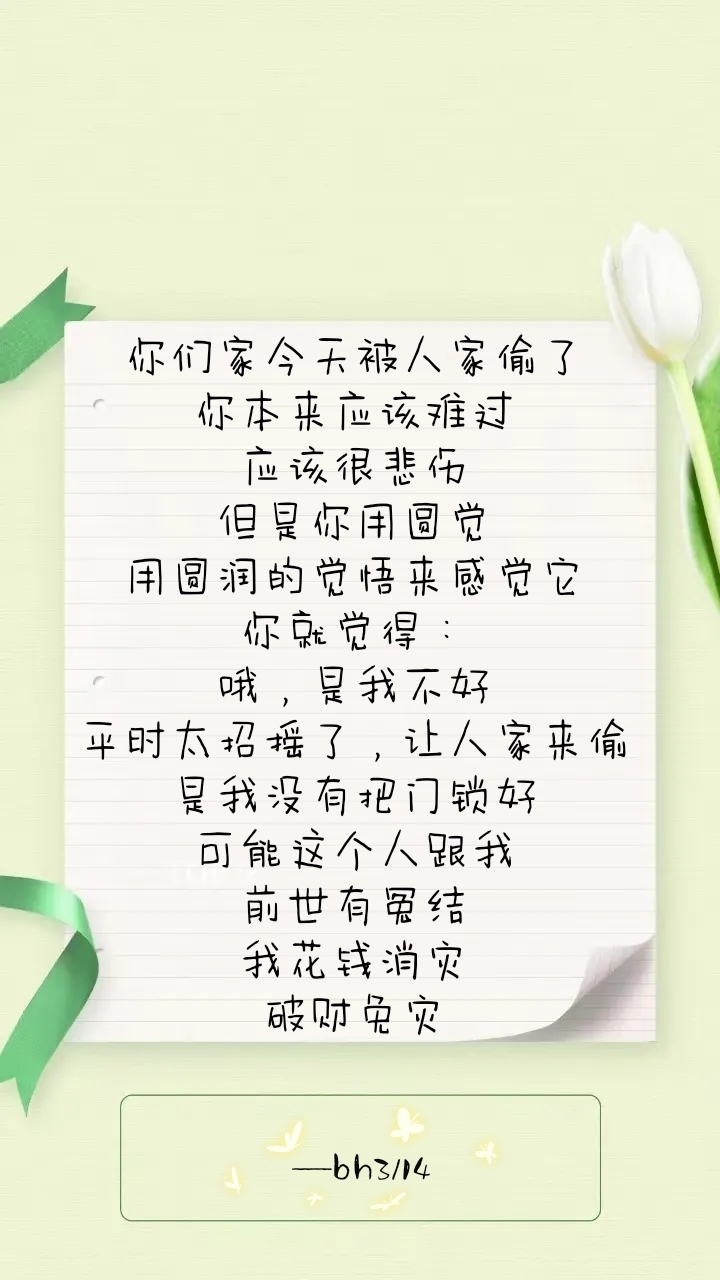 你们家今天被人家偷了
你本来应该难过
应该很悲伤
但是你用圆觉
用圆润的觉悟来感觉它
你就觉得：
哦，是我不好
平时太招摇了，让人家来偷
是我没有把门锁好
可能这个人跟我
前世有冤结
我花钱消灾
破财免灾
—bh3/14